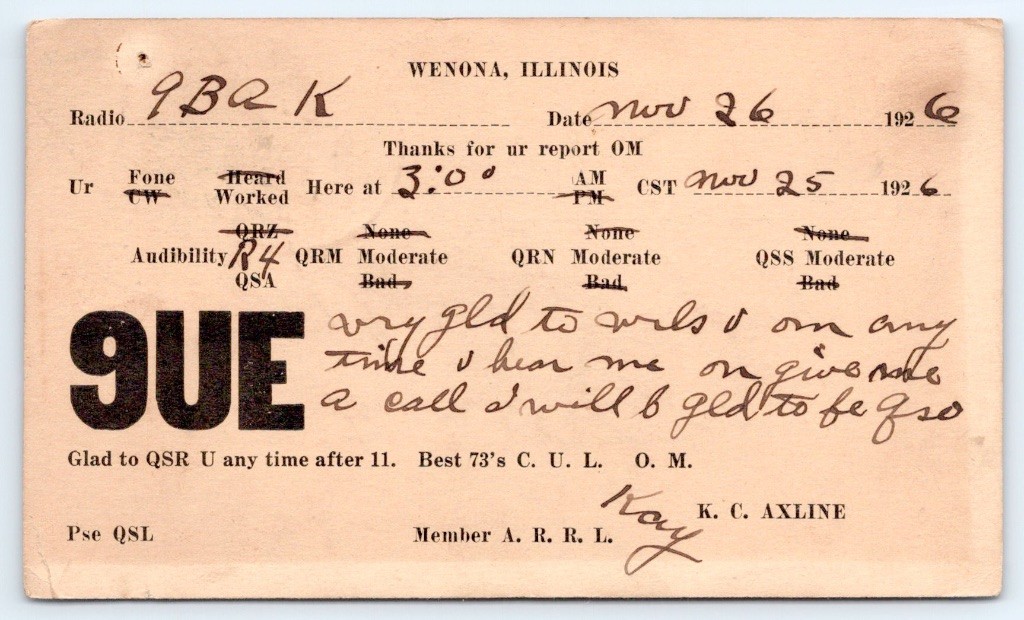 WENONA, ILLINOIS
Radio 9BAK Date Nov 26 1926
Thanks for ur report OM
Ur Fone CW Heard Worked Here at 3:00 AM PM CST Nov 25 1926
QRZ None None None
Audibility R4 QRM Moderate QRN Moderate QSS Moderate
QSA Bad Bad Bad
9UE
vry gld to wrls U om any
time U hear me on give me
a call I will b gld to fb Qso
Glad to QSR U any time after 11. Best 73's C. U. L. O. M.
Kay K. C. AXLINE
Pse QSL Member A. R. R. L.